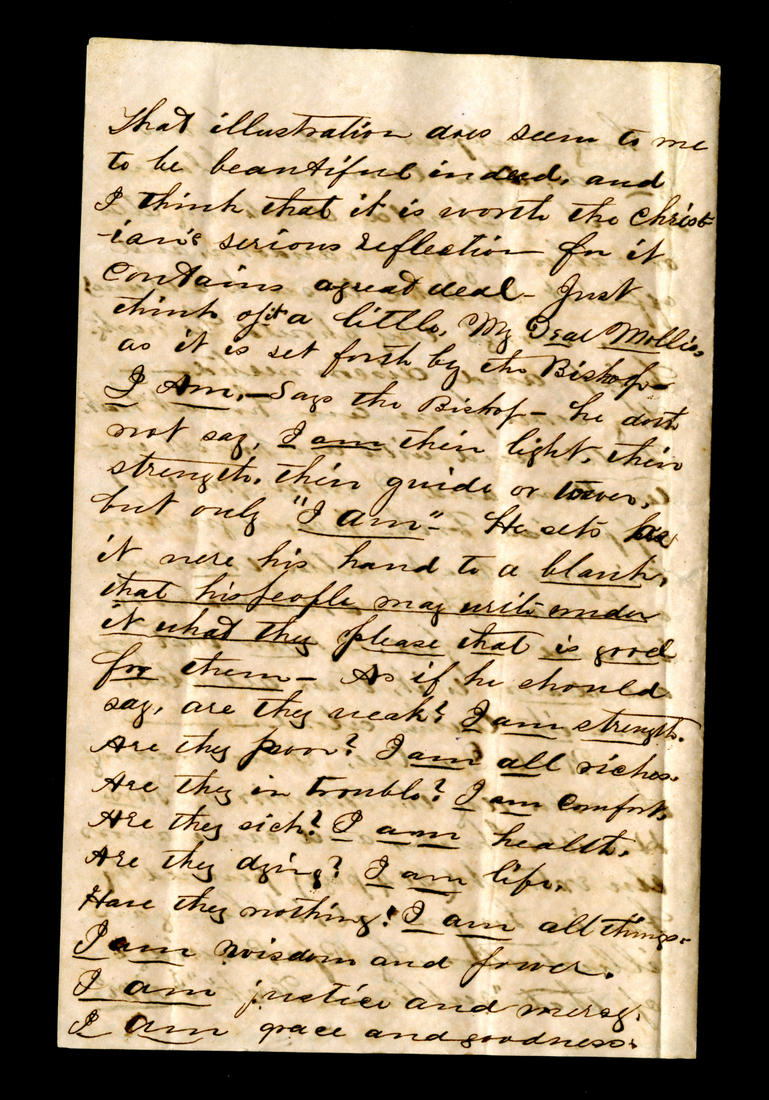 That illustration does seem to me
to be beautiful indeed, and
I think that it is worth the Christ-
-ian's serious reflection for it
Contains agreatdeal - Just
think of it a little, My Dear Mollie,
as it is set forth by the Bishop -
I Am, - Says the Bishop - he doth
not say, I am their light, their
strength, their guide or tower,
but only "I am" - He sets as
it were his hand to a blank,
that his people may write under
it what they please that is good
for them - As if he should
say, are they weak? I am strength.
Are they poor? I am all riches.
Are they in trouble? I am Comfort,
Are they sick? I am health.
Are they dying? I am life.
Have they nothing? I am all things.
I am wisdom and power.
I am justice and mercy.
I am grace and goodness.